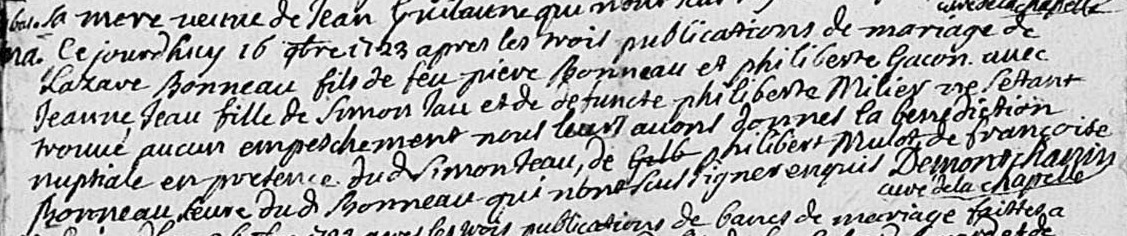 sa mere veuve de Jean Guilaune qui n'ont
curé de la chapelle
Ce jourdhuy 16 9bre 1723 apres les trois publications de mariage de
Lazare Bonneau fils de feu piere Bonneau et philiberte Gacon avec
Jeanne Teau fille de Simon Tau et de defuncte philiberte Milier ne settant
trouvé aucun empeschement nous leurs avons donnés la benediction
nuptiale en presence dud Simon Teau, de philibert Mulot de françoise
Bonneau seure dud Bonneau qui n'ont sçus signer enquis Demontchanin
curé de la chapelle
1723 apres les trois publications de bancs de mariage faittes a